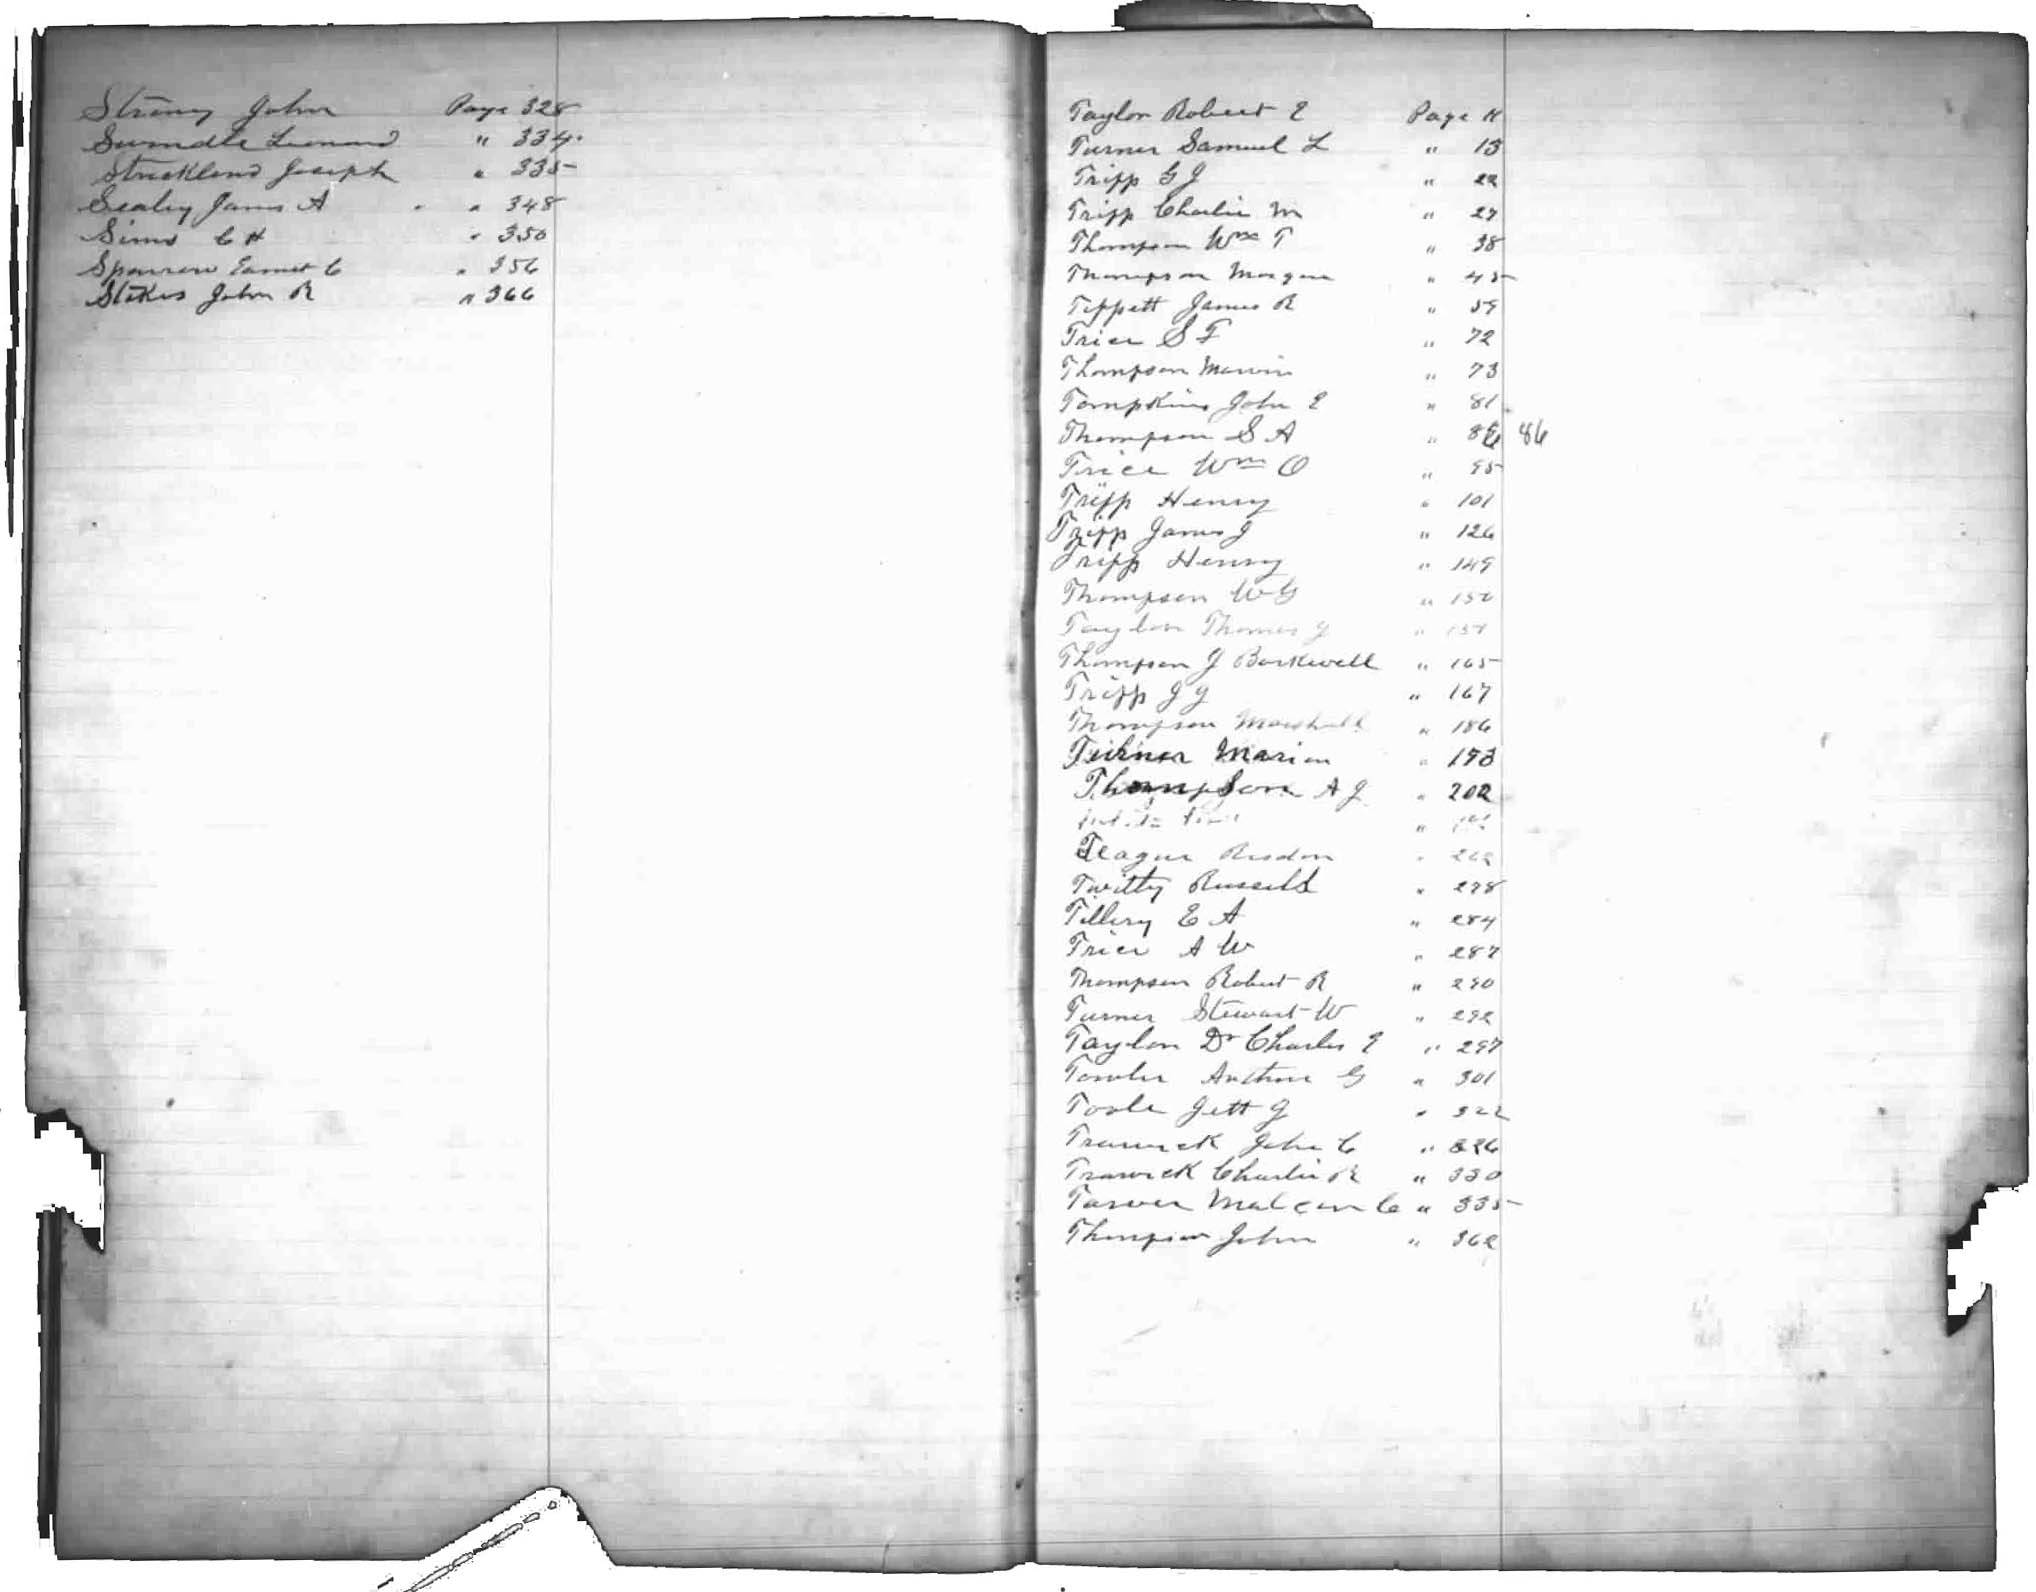 John Page 328
Swindle Leonard " 334
Strickland Joseph " 335
Sealey James A " 348
Sims C H " 350
Sparrow Earnest C " 356
Stokes John R " 366
Taylor Robert E Page
Turner Samuel L " 13
Tripp G J " 22
Tripp Charlie M " 27
Thompson Wm T " 38
Thompson Morgan " 45
Tippett James R " 59
Trice S F " 72
Thompson Marvin " 73
Tompkins John E " 81
Thompson S A " 86 86
Trice Wm O " 95
Tripp Henry " 101
Tripp James J " 126
Tripp Henry " 149
Thompson W G " 150
Taylor Thomas J "
Thompson J Barkwell " 165
Tripp J J " 167
Thompson Marshall " 186
Turner Marion " 193
Thompson A J " 202
"
Teague "
Twitty Russell " 278
Tillery E A " 284
Trice A W " 287
Thompson Robert R " 290
Turner Stewart W " 292
Taylor Dr Charles E " 297
Towler G " 301
Toole Jett J " 322
Trawick John C " 326
Trawick Charlie R " 330
Tarver C " 335
Thompson John " 362